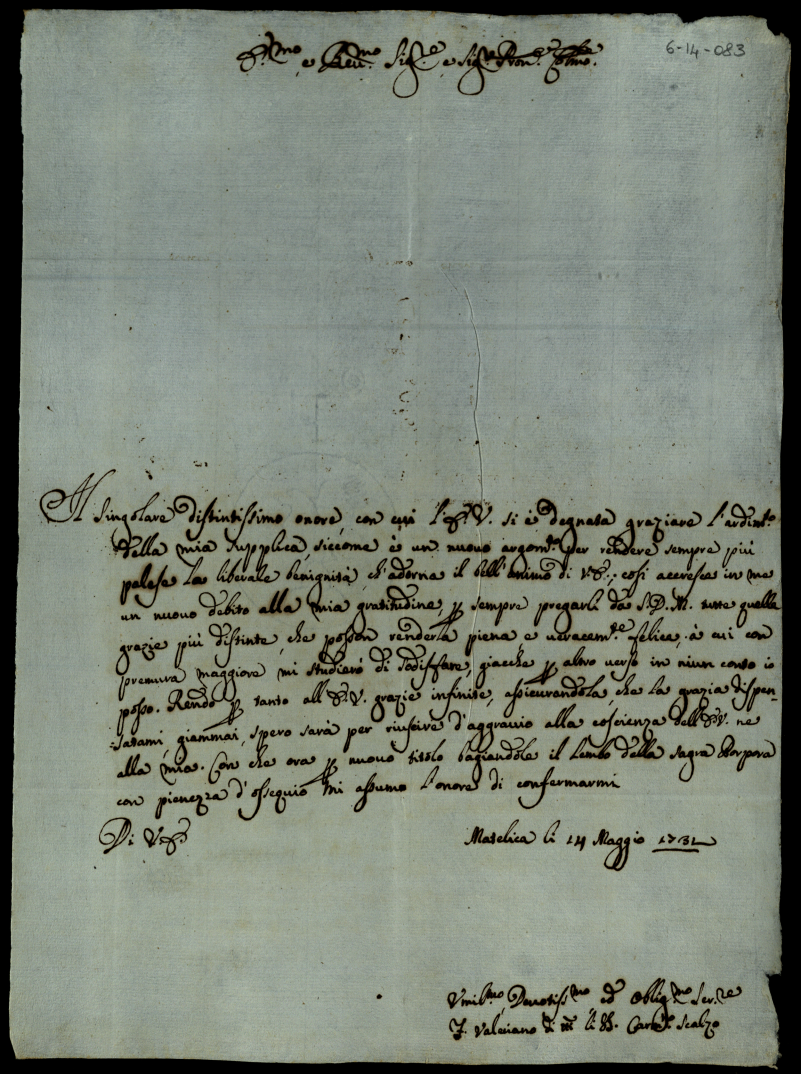 6-14-083
E.mo e Rev.mo Sig.re e Sig.re Pron.e Colmo.
Il singolare distintissimo onore, con cui l'E.V. si è degnata graziare l'ardim.to
della mia supplica, siccome è un nuovo argom.to per rendere sempre più
palese la liberale benignità, ch'adorna il bell'animo di V.E., così accresce in me
un nuovo debito alla mia gratitudine, p sempre pregarli da S.D.M. tutte quelle
grazie più distinte, che posson renderla piena, e veracem.te felice, à cui con
premura maggiore mi studierò di sodisfare, giacche p altro verso in niun conto io
posso. Rendo p tanto all'E.V. grazie infinite, assicurandola, che la grazia dispen-
satami, giammai, spero sarà per riuscire d'aggravio alla coscienza dell'E.V. ne
alla mia. Con che ora p nuovo titolo bagiandole il lembo della sagra Porpora
con pienezza d'ossequio mi assumo l'onore di confermarmi
Di V.E.
Matelica li 14 Maggio 1731
Umil.mo Devotiss.mo ed Oblig.mo Ser.re
F. Valeriano di Carm. Scalzo